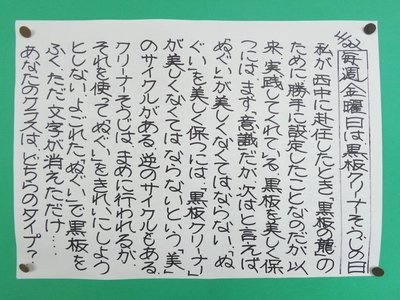 毎週金曜日は、黒板クリーナーそうじの日
私が西中に赴任したとき、「黒板の籠」の
ために勝手に設定したことなのだが、以
来、実践してくれている。黒板を美しく保
つには、まず、意識だが、次はと言えば、
ぬぐいが美しくなくてはならない。「ぬ
ぐい」を美しく保つには、「黒板クリーナー」
が美しくなくてはならないという、「美」
のサイクルがある。逆のサイクルもある。
クリーナーそうじは、まめに行われるが、
それを使って「ぬぐい」をきれいにしよう
としない。よごれた「ぬぐい」で黒板を
ふく。ただ、文字が消えただけ…
あなたのクラスは、どちらのタイプ?